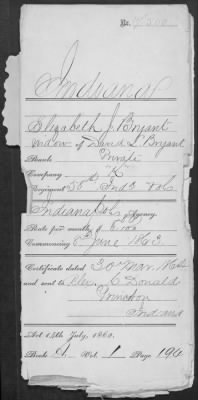 Indiana
Elizabeth J. Bryant
widow of David S. Bryant
Rank Private
Company "K"
Regiment 55th Ind Vols
Indianapolis Agency.
Rate per month, $8.00
Commencing 8 June 1863.
Certificate dated 30 Mar.
and sent to Donald
Princeton
Indiana
Act 14th July, 1862.
Book Vol. 1 Page 196